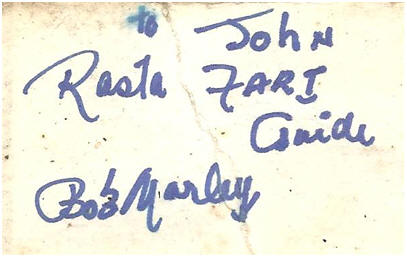 to John
Rasta FARI
Guide
Bob Marley